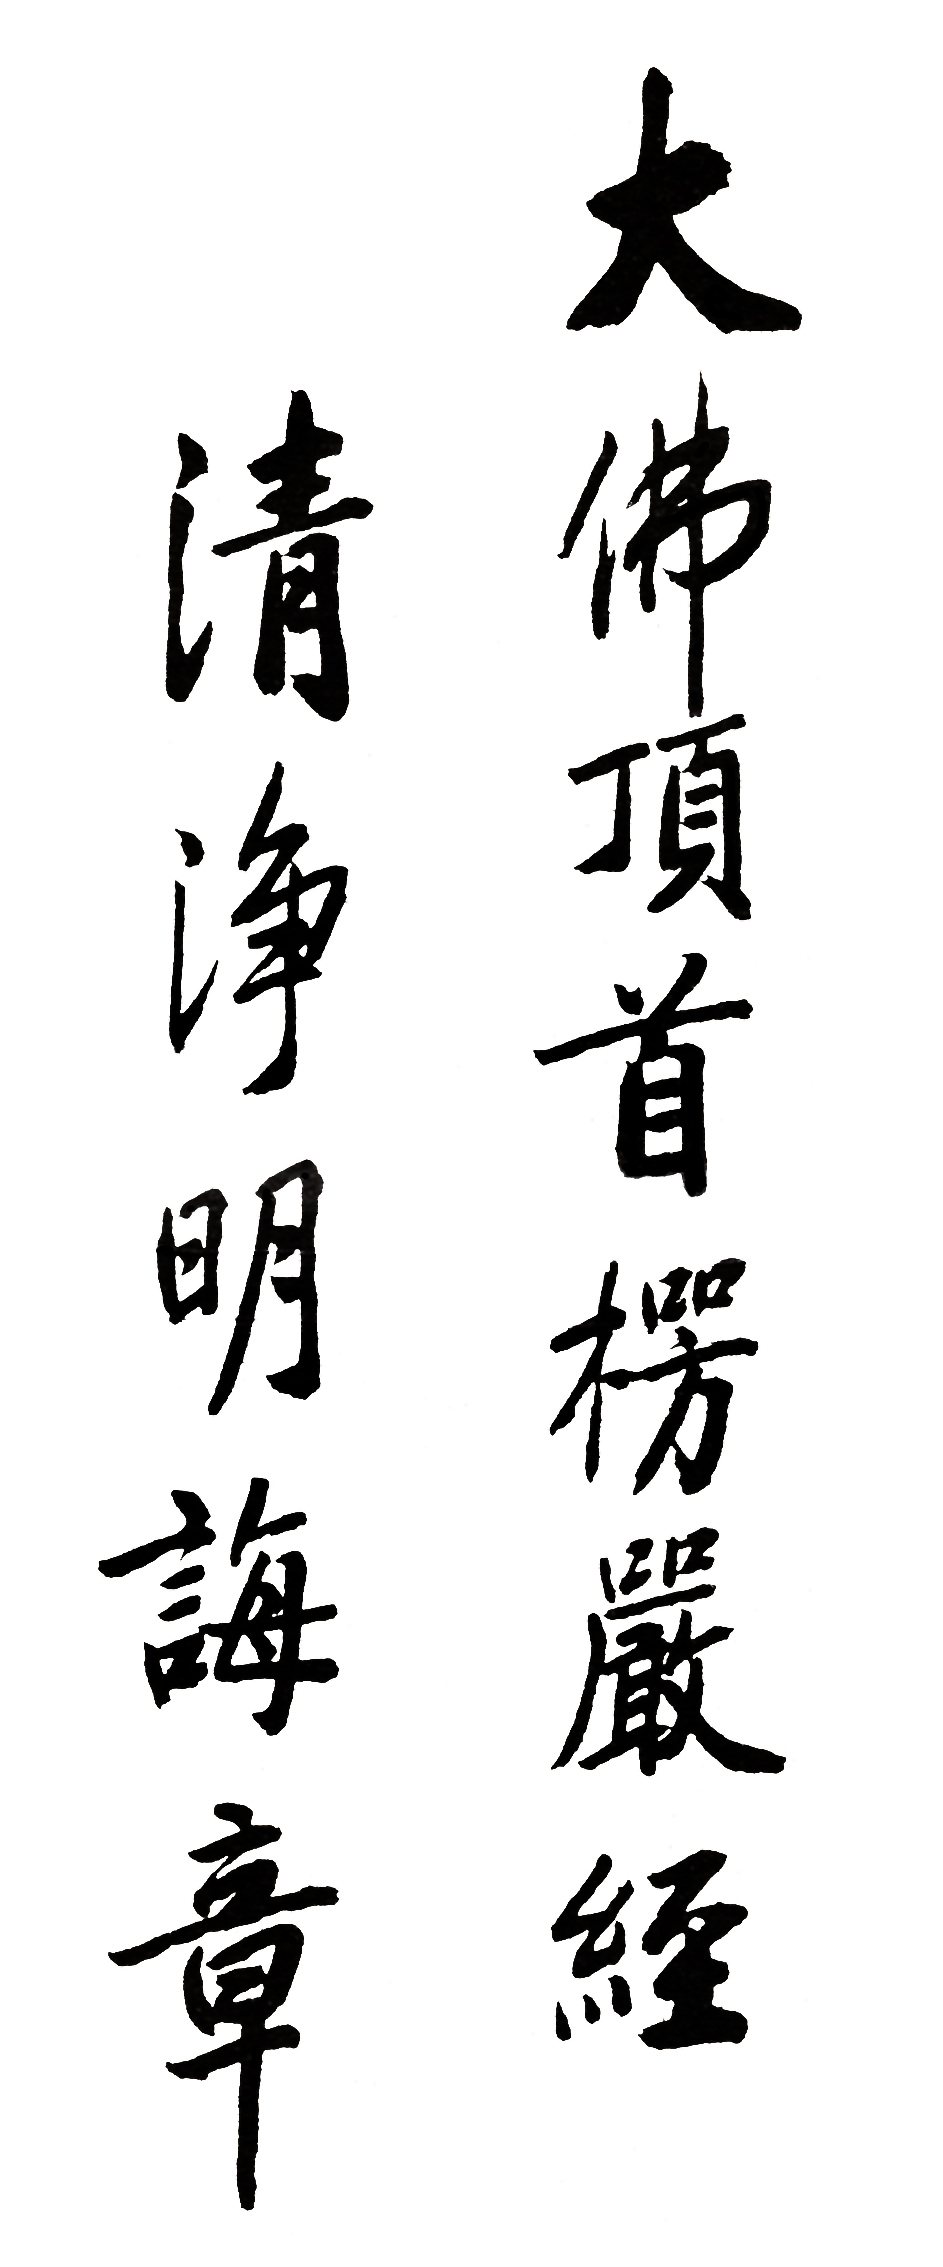 大佛頂首楞嚴經
清淨明誨章